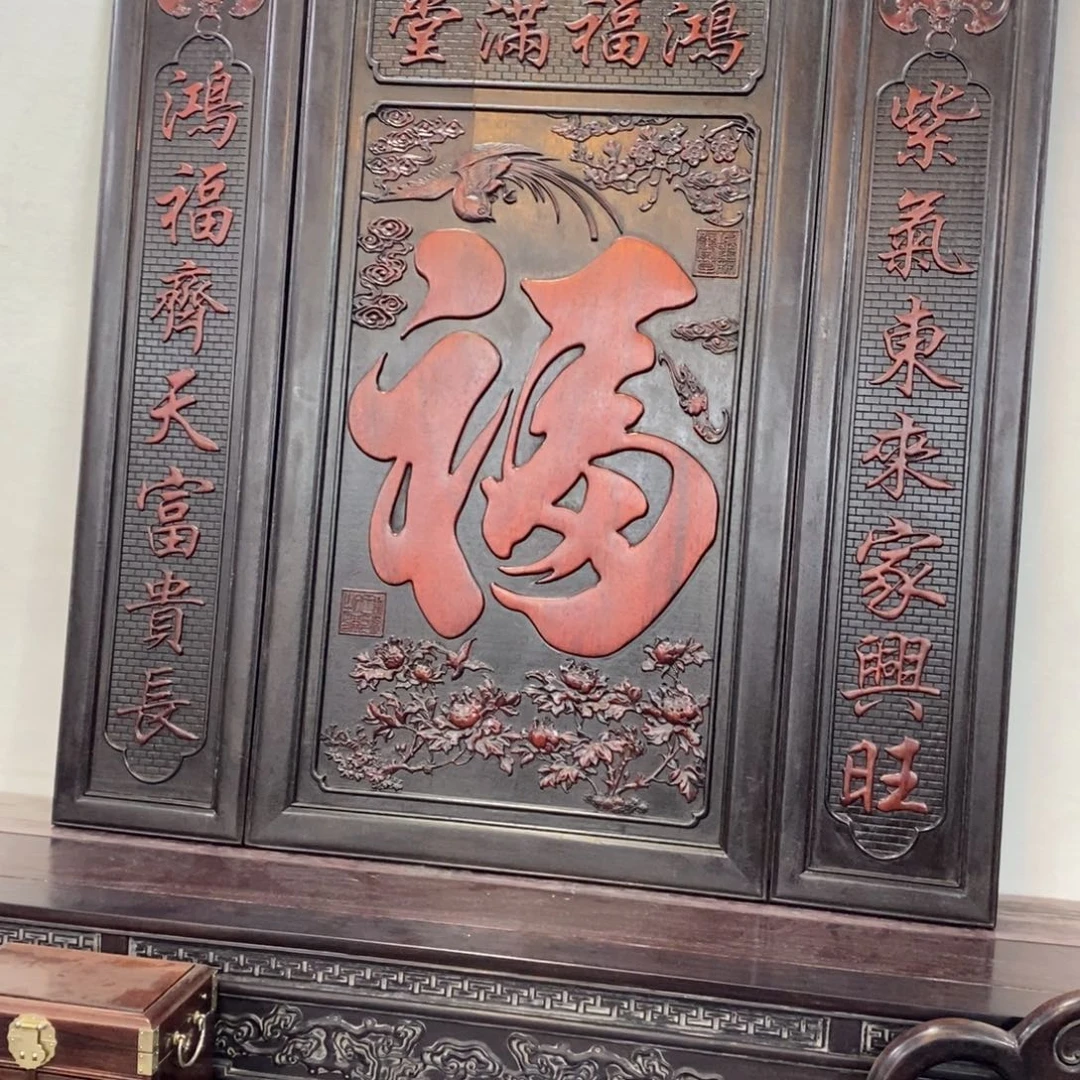 鴻福滿堂
紫氣東來家興旺
福
鴻福齊天富貴長